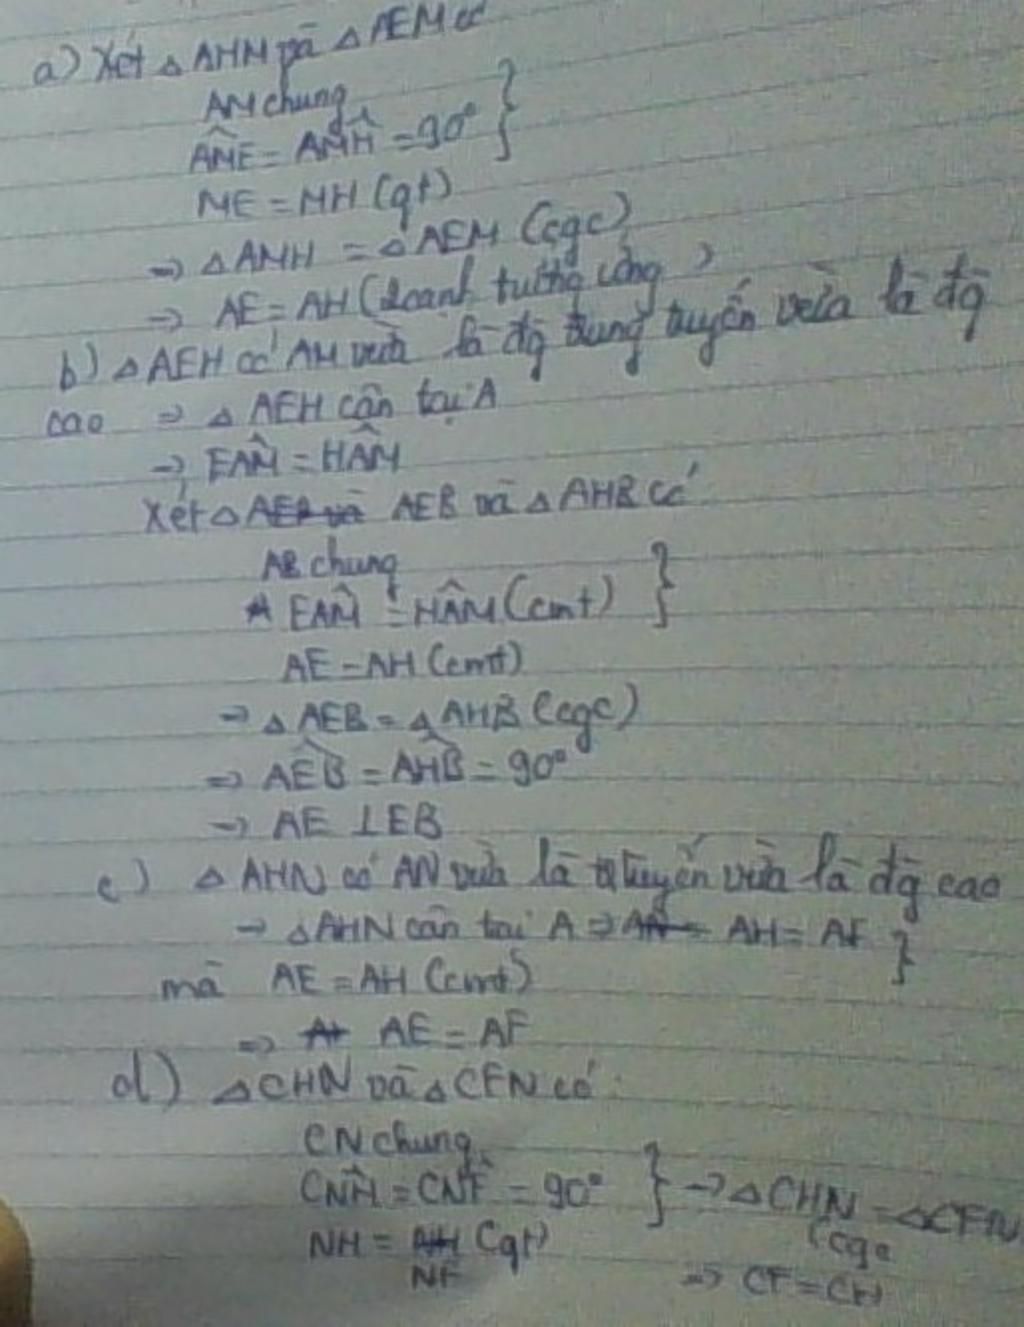 a) Xét △ AHM và △ AEM có
AM chung
AM̂E = AM̂H = 90°
ME = MH (gt)
→ △ AMH = △ AEM (cgc)
→ AE = AH (2 cạnh tương ứng)
b) △ AEH có AM vừa là đg trung tuyến vừa là đg
cao → △ AEH cân tại A
→ EÂM = HÂM
Xét △ AEB và AEB và △ AHB có
AB chung
EÂM = HÂM (cmt)
AE = AH (cmt)
→ △ AEB = △ AHB (cgc)
→ AÊB = AĤB = 90°
→ AE ⊥ EB
c) △ AHN có AN vừa là tuyến vừa là đg cao
→ △ AHN cân tại A → AH = AF
mà AE = AH (cmt)
→ AE = AF
d) △ CHN và △ CFN có:
CN chung
CN̂H = CN̂F = 90° → △ CHN = △ CFN
NH = AH (gt) (cgc
NF → CF = CH